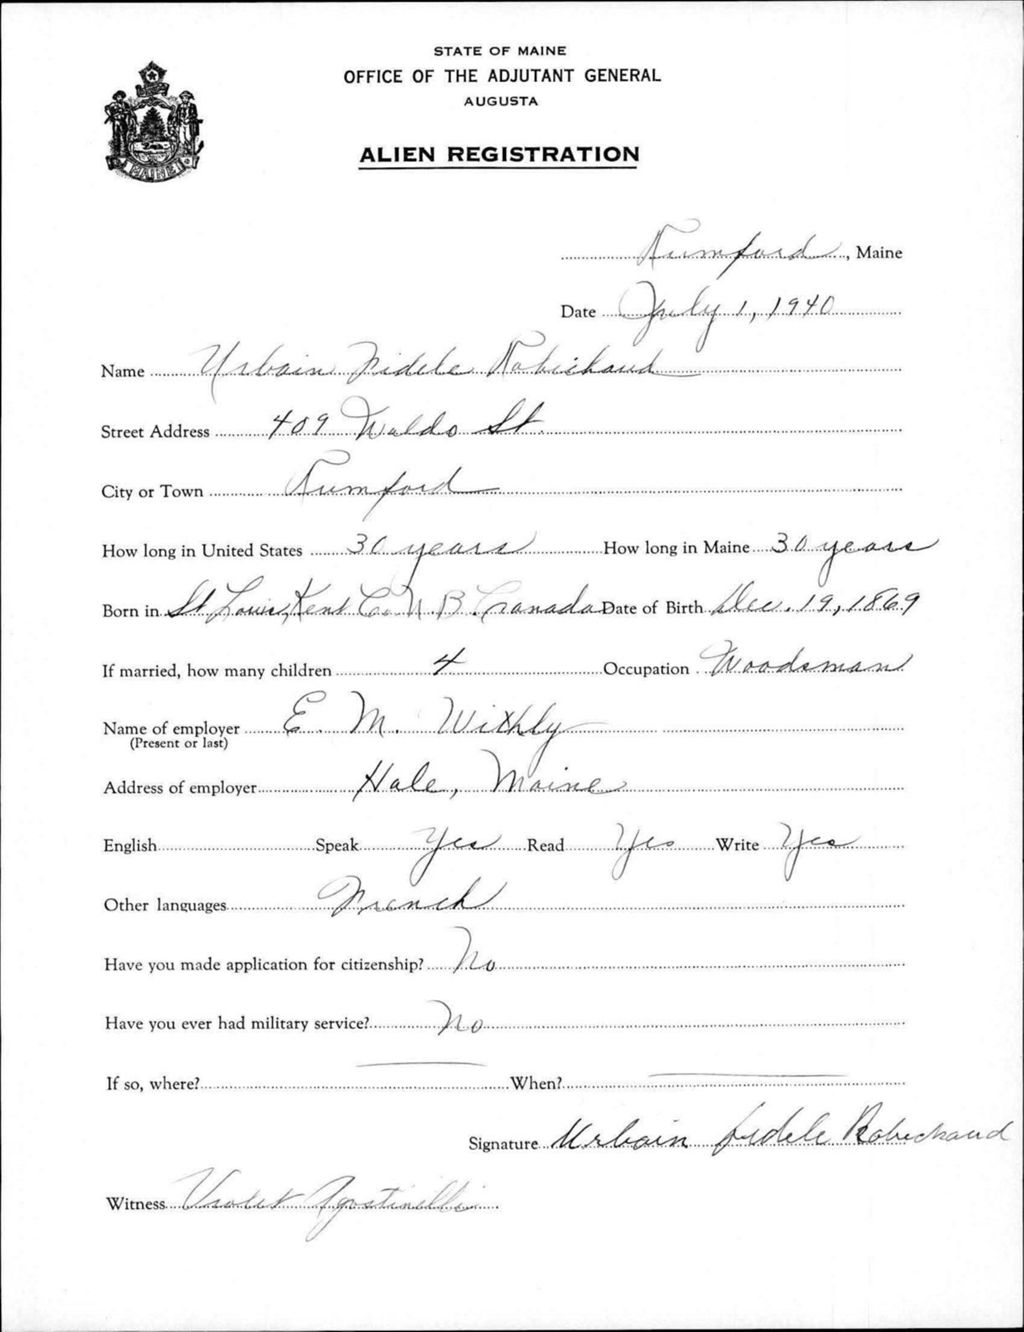 STATE OF MAINE
OFFICE OF THE ADJUTANT GENERAL
AUGUSTA
ALIEN REGISTRATION
MAINE
Rumford, Maine
Date July 1, 1940
Name Urbain Fidele Robichaud
Street Address 409 Waldo St.
City or Town Rumford
How long in United States 30 years How long in Maine 30 years
Born in St Louis, Kent Co N.B. Canada Date of Birth Dec. 19, 1869
If married, how many children 4 Occupation Woodsman
Name of employer E. M. Withly
(Present or last)
Address of employer Hale, Maine
English Speak Yes Read Yes Write Yes
Other languages French
Have you made application for citizenship? No
Have you ever had military service? No
If so, where? — When? —
Signature Urbain fidele Robichaud
Witness Violet Agostinelli